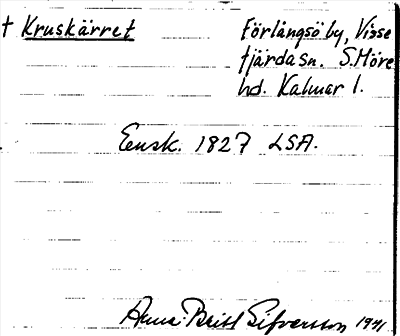 † Kruskärret Förlångsö by, Visse
fjärda sn. S. Möre
hd. Kalmar l.
Ensk. 1827 LSA.
Anna-Britt Sifversson 1941